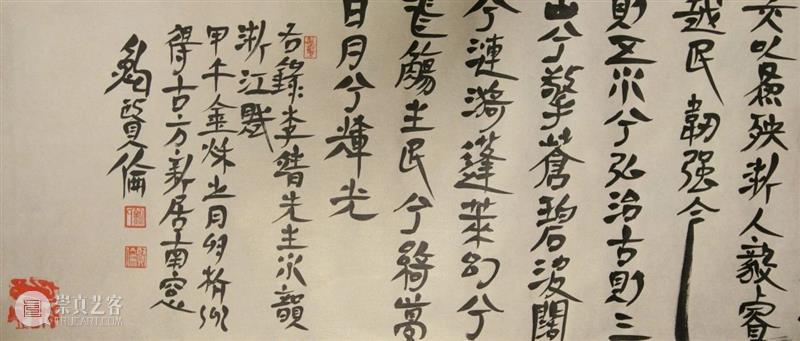 以暴殃浙人毅睿
越民韌强今
則五水兮弘治古則三
山兮擎蒼碧波闊
兮漣漪蓬萊幻兮
觴生民兮綺萬
日月兮輝光
右錄李先生水韻
浙江賦
甲午金秋上月於杭州
得古方新居南窓
鮑賢倫
崇真艺客
TRUEART.COM